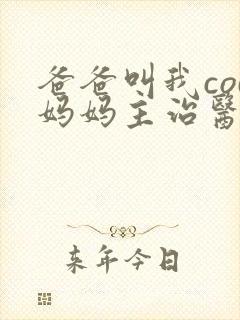 爸爸叫我co
妈妈主治醫
来年今日